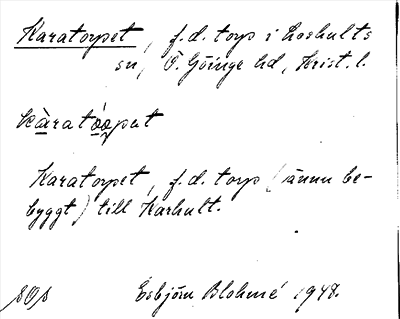 Karatorpet, f.d. torp i Loshults
sn, Ö. Göinge hd, Krist. l.
kàratórput
Karatorpet, f.d. torp (ännu be-
byggt) till Karhult.
Esbjörn Blohmé 1948.